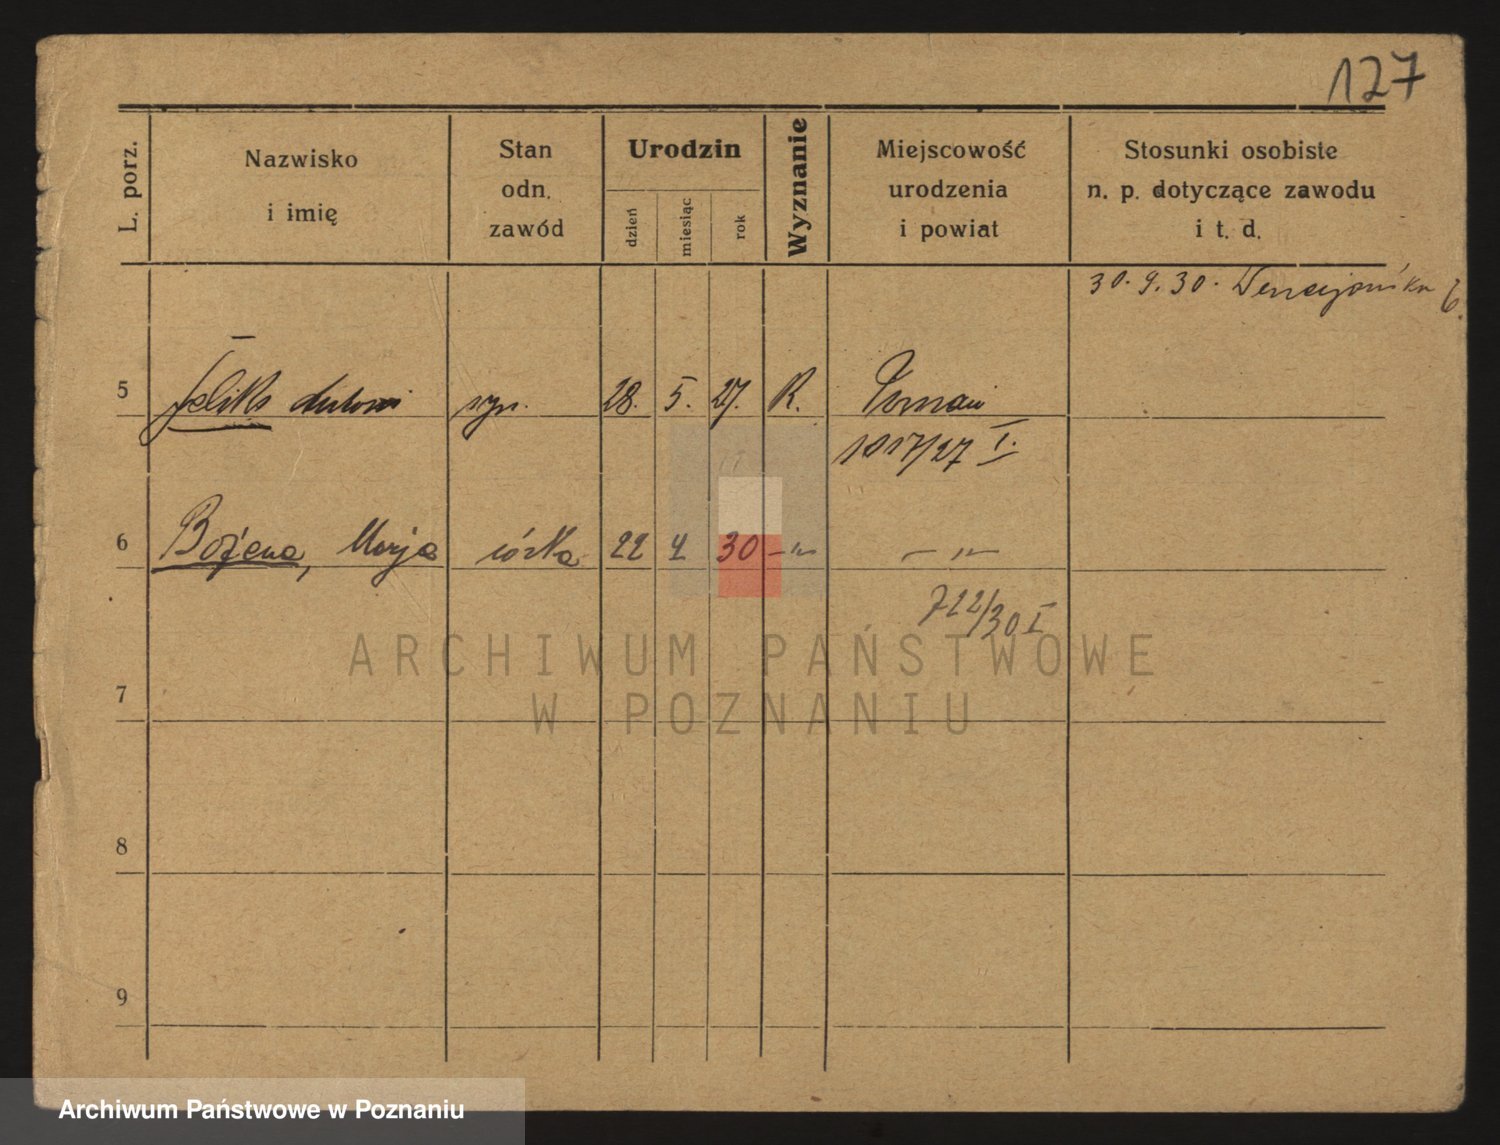 127
L. porz.
Nazwisko
i imię
Stan
odn.
zawód
Urodzin
dzień
miesiąc
rok
Wyznanie
Miejscowość
urodzenia
i powiat
Stosunki osobiste
n. p. dotyczące zawodu
i t. d.
30. 9. 30.
5 Feliks syn. 28. 5. 27. R. Poznań
1017/27 I.
6 Bożena, Marja córka 22 4 30 -"- - " -
722/30 I
ARCHIWUM PAŃSTWOWE
W POZNANIU
7
8
9
Archiwum Państwowe w Poznaniu